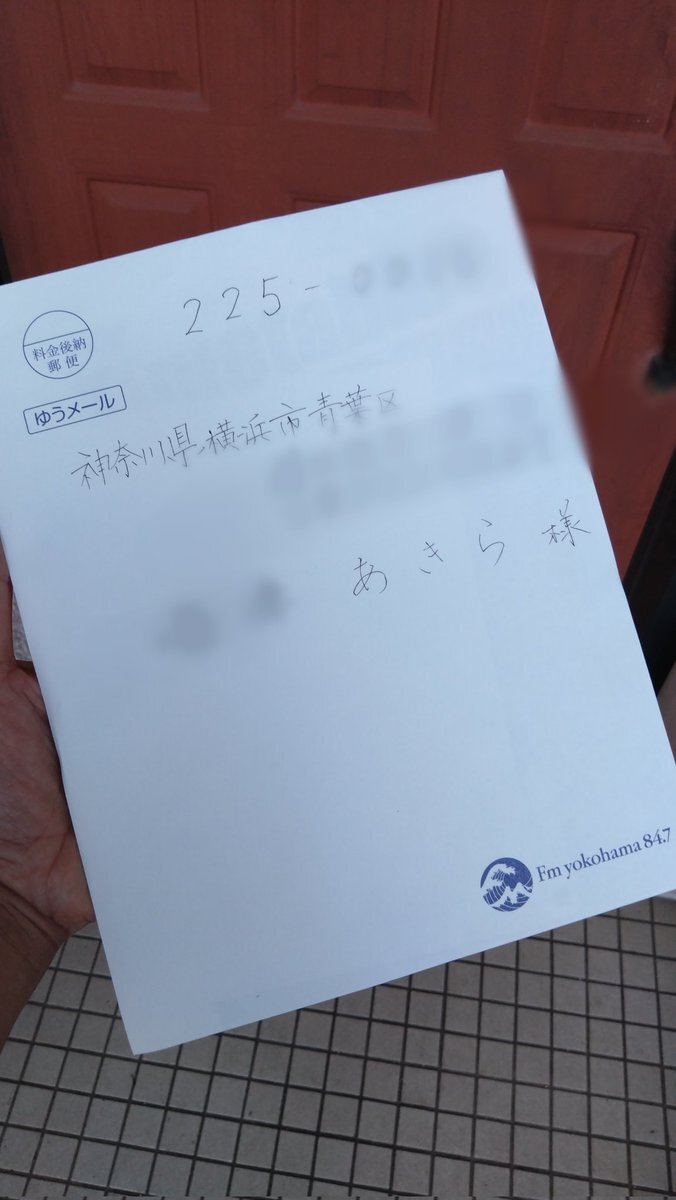 225-
料金後納
郵便
ゆうメール
神奈川県横浜市青葉区
あきら様
Fm yokohama 84.7